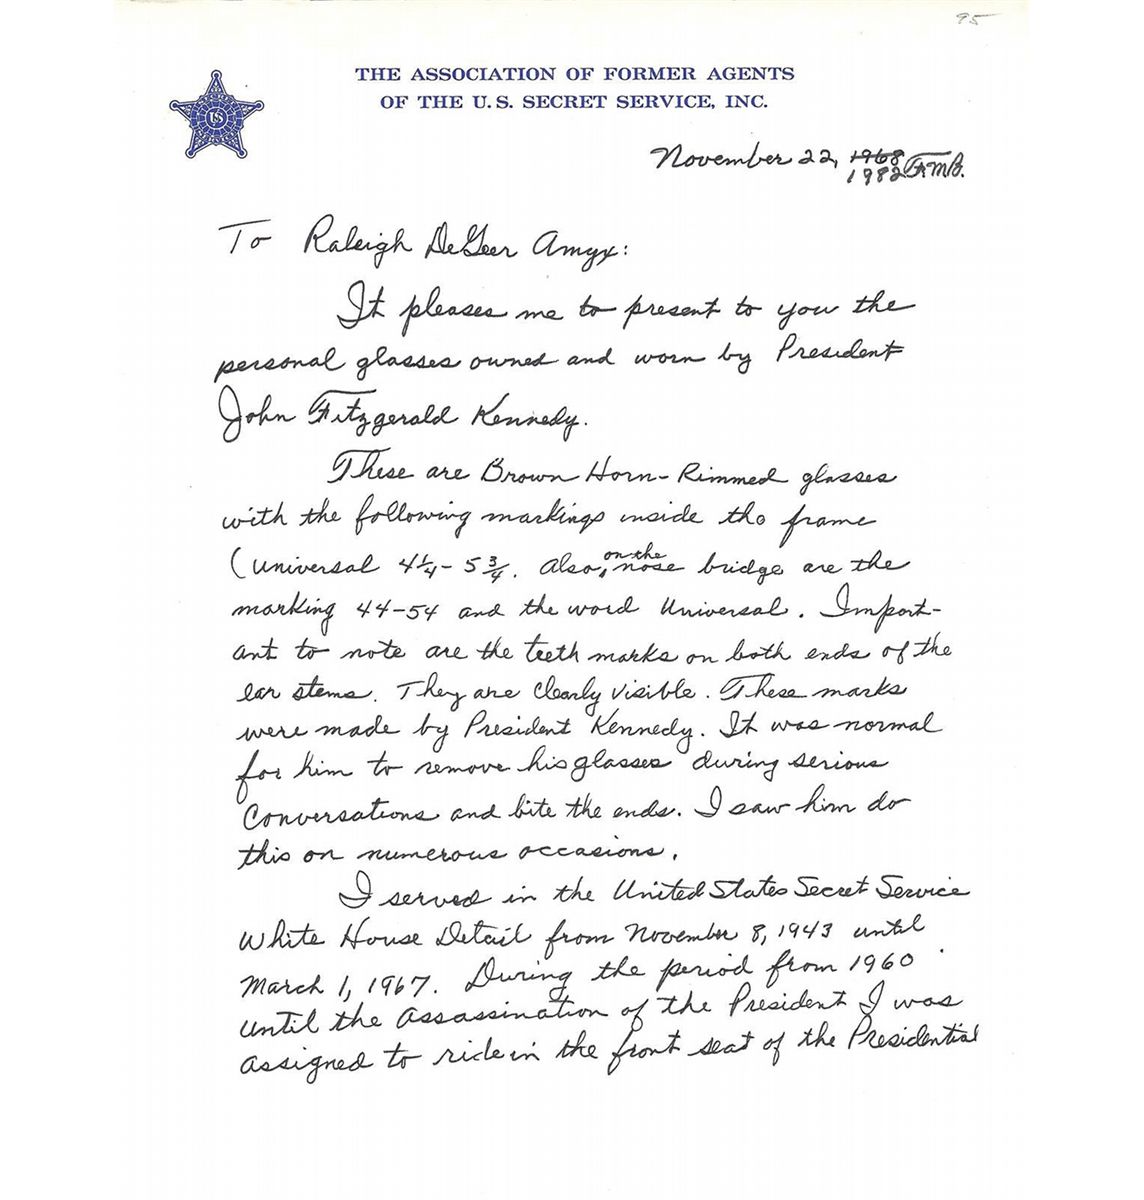 95
THE ASSOCIATION OF FORMER AGENTS
OF THE U.S. SECRET SERVICE, INC.
US
November 22, 1968
1982 F.M.B.
To Raleigh DeGeer Amyx:
It pleases me to present to you the
personal glasses owned and worn by President
John Fitzgerald Kennedy.
These are Brown Horn-Rimmed glasses
with the following markings inside the frame
(Universal 4 1/4 - 5 3/4. Also, on the nose bridge are the
marking 44-54 and the word Universal. Import-
ant to note are the teeth marks on both ends of the
ear stems. They are clearly visible. These marks
were made by President Kennedy. It was normal
for him to remove his glasses during serious
conversations and bite the ends. I saw him do
this on numerous occasions.
I served in the United States Secret Service
White House Detail from November 8, 1943 until
March 1, 1967. During the period from 1960
until the assassination of the President I was
assigned to ride in the front seat of the Presidential